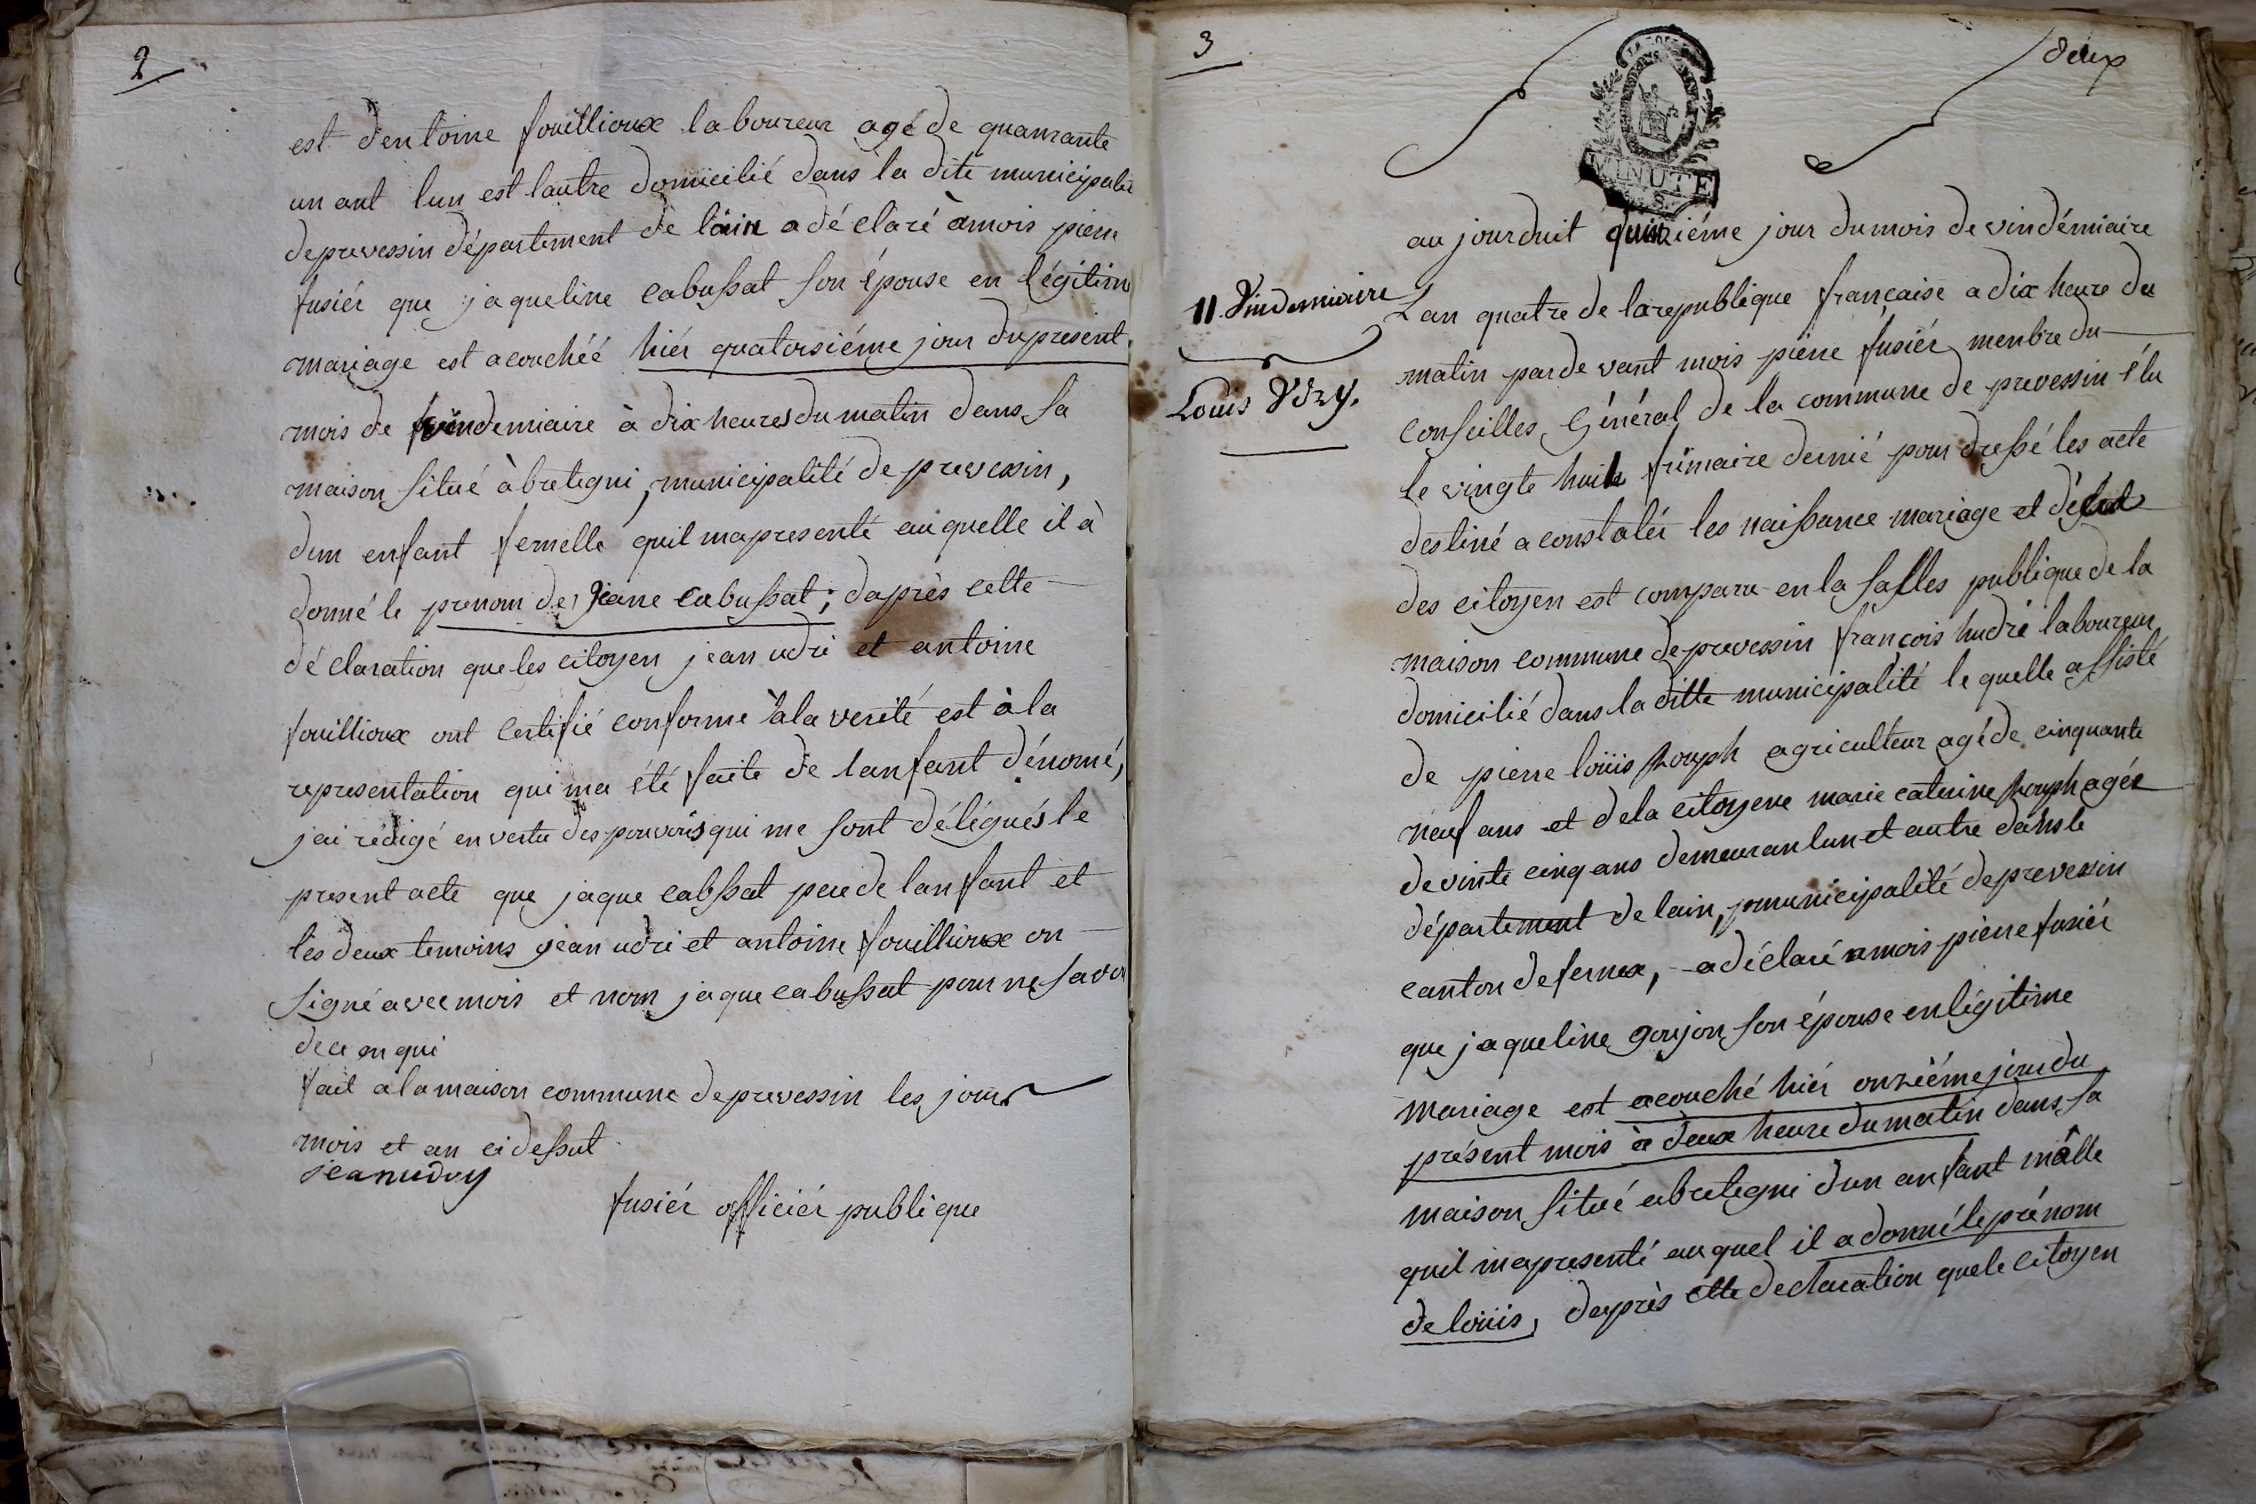 2
est dentoine fouillioux laboureur agé de quanrante
un ant lun est lautre domicilié dans la dite municipalité
de prevessin département de lain a déclaré à mois pierre
fusiér que jaqueline cabussat son épouse en légitime
mariage est acouchéé hiér quatorsiéme jour du present
mois de vindemiaire à dix heures du matin dans sa
maison situé à bretegni, municipalité de prevessin,
dun enfant femelle quil mapresenté auquelle il à
donné le prenom de jeane cabussat; daprès cette
déclaration que les citoyen jean udri et antoine
fouillioux ont certifié conforme à la verité est à la
representation qui ma été faite de lanfant dénomé,
jai rédigé en vertu des pouvoirs qui me sont délégués le
present acte que jaque cabssat pere de lanfant et
les deux temoins jean udri et antoine fouillioux on
signé avec mois et nom jaque cabussat pour ne savoir
de ce en qui
fait a la maison commune de prevessin les jour
mois et an ci dessut
jean udry
fusiér officiér publique
3
deux
MINUTE
au jourduit quinziéme jour du mois de vindémiaire
11. Vindemiaire
Lan quatre de la republique francaise a dix heure du
matin par de vant mois piérre fusiér menbre du
Louis Vdry.
Conseilles Général de la commune de prevessin élu
le vingte huit frimaire dernié pour dressé les acte
destiné a constatér les naissance mariage et décet
des citoyen est comparu en la salles publique de la
maison commune de prevessin françois hudri laboureur
domicilié dans la ditte municipalité le quelle assisté
de pierre loüis rouph agriculteur agé de cinquante
neuf ans et de la citoyene marie caterine rouph agée
de vinte cinq ans demeuran lun et autre dans le
département de lain, municipalité de prevessin
canton de fernex, a déclaré a mois pierre fusiér
que jaqueline goujon son épouse en légitime
mariage est acouché hiér onziéme jour du
présent mois à deux heure du matin dans sa
maison situé a bretegni dun anfant mâlle
quil mapresenté auquel il a donné le prénom
de loüis, daprès cette declaration que le citoyen